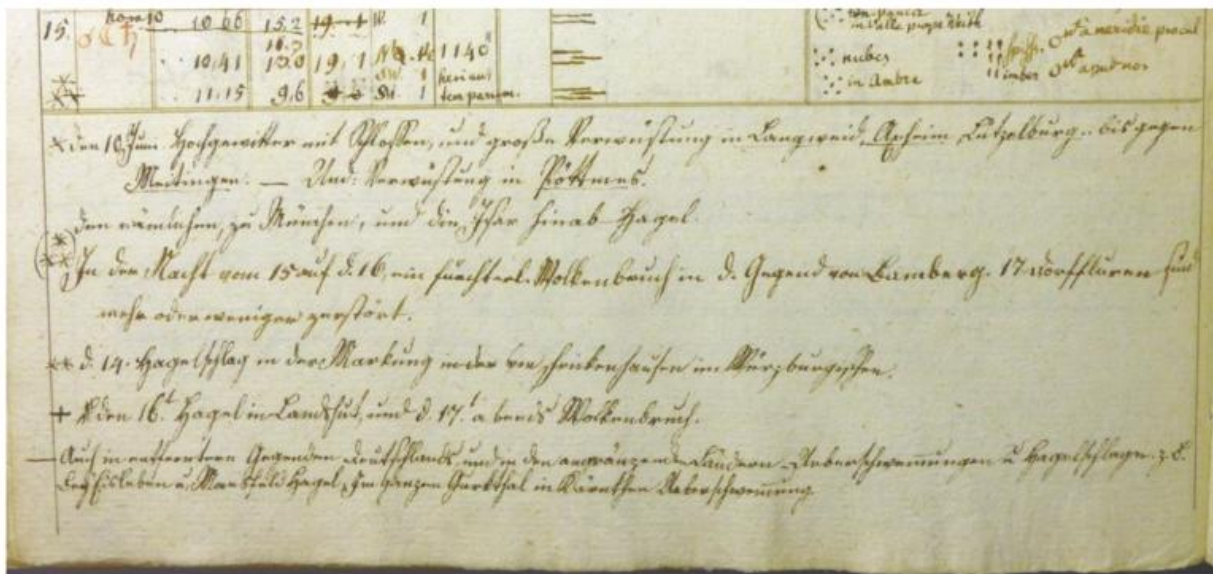 15. hora 10 10 66 15.2 19 W. 1
10,41 13.0 19,1 1140
11.15 9,6 SW. 1 temperium.
nubes
in Ambre imber
* den 10. Juni Hochgewitter mit Schlossen, und große Verwüstung in Langweid, Axheim, Lützelburg bis gegen
Meitingen. — Und: Verwüstung in Pöttmes.
den nämlichen, zu München, und die Isar hinab Hagel
In der Nacht vom 15 auf d. 16. ein fürchterl. Wolkenbruch in d. Gegend von Bamberg. 17 Dorffluren sind
mehr oder weniger zerstört.
** d. 14. Hagelschlag in der Markung in der im Würzburgischen.
+ den 16t Hagel in Landshut, und d. 17.t abends Wolkenbruch.
— Auch in entfernteren Gegenden Deutschlands, und in den angränzenden Ländern Ueberschwemmungen u Hagelschlage. z. B.
bey Eisleben u. Mansfeld Hagel, Im ganzen Gurkthal in Kärnthen Ueberschwemmung